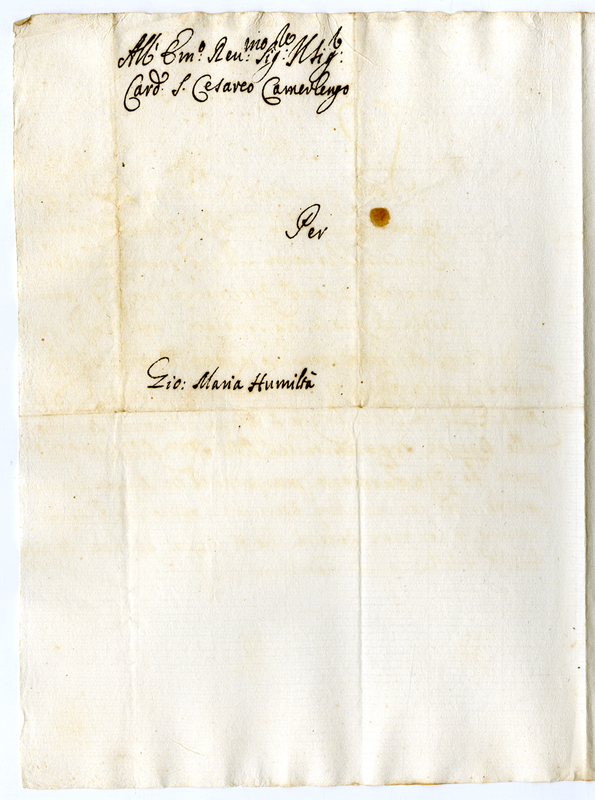 All' Em.º Reu.mo Sig.re Il Sig.r
Card. S. Cesareo Camerlengo
Per
Gio: Maria Humiltà